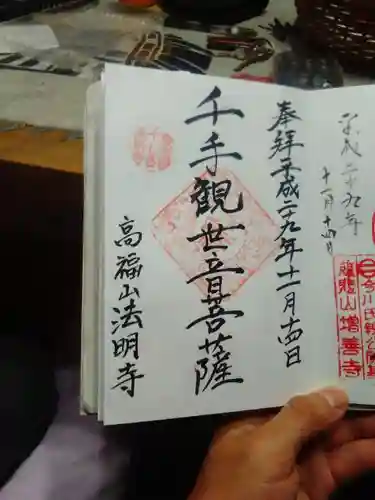 平成二十九年
十一月十四日
今川氏親公墓
龍悲山 増善寺
奉拝 平成二十九年十一月十四日
千手観世音菩薩
高福山法明寺